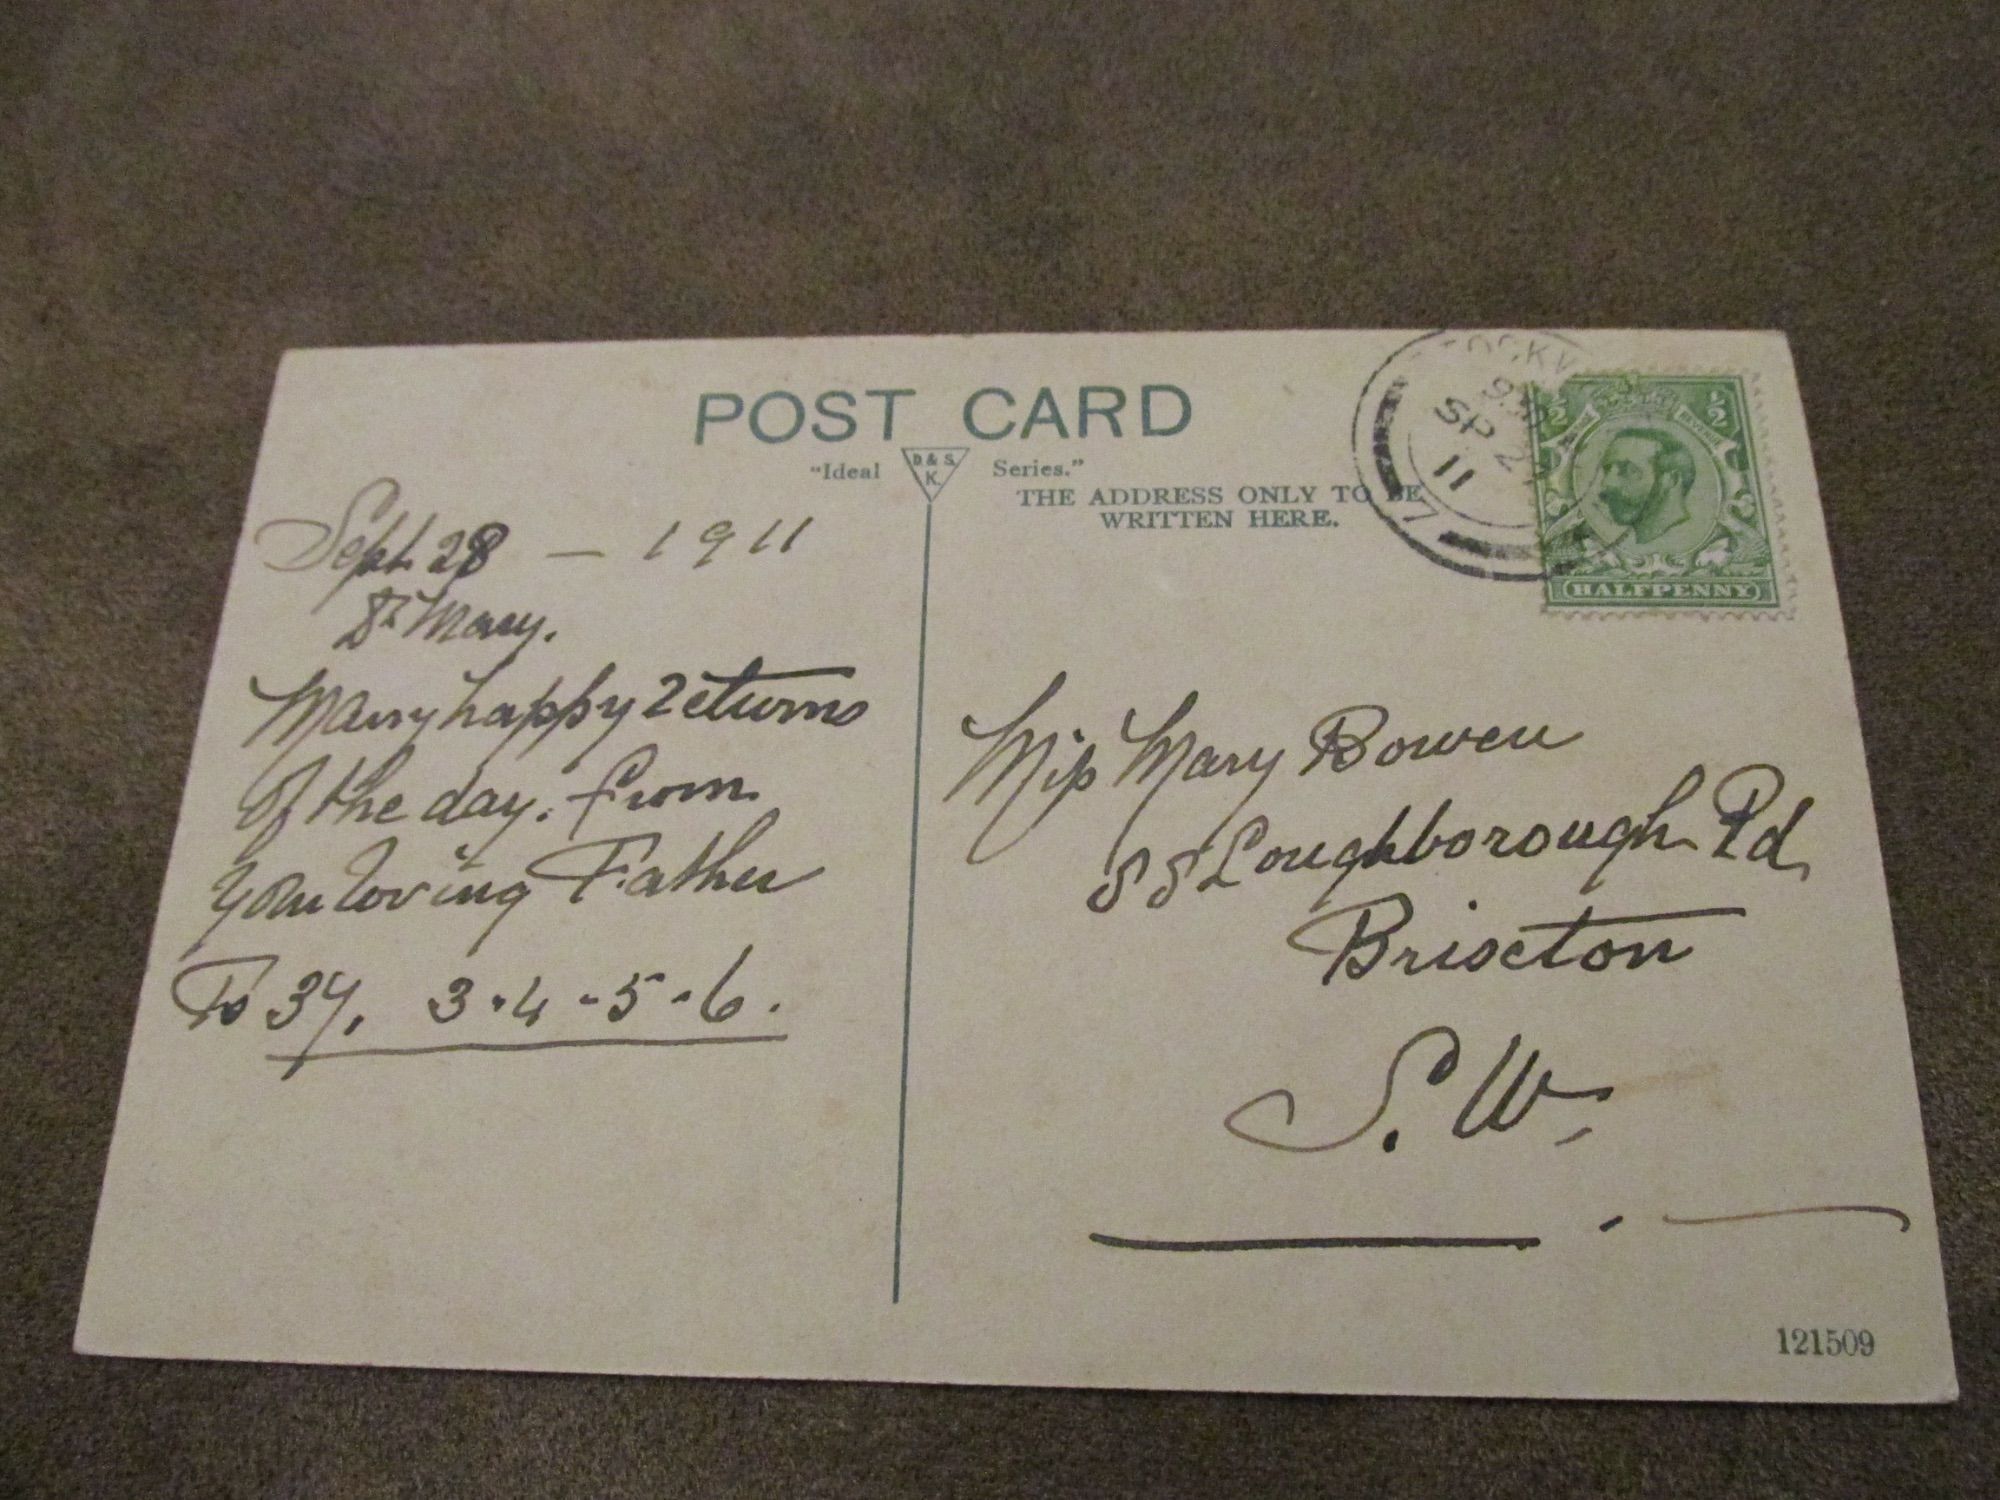 POST CARD
"Ideal D & S. K. Series."
THE ADDRESS ONLY TO BE
WRITTEN HERE.
SP 2
11
½ ½
REVENUE
HALFPENNY
Sept. 28 — 1911
Dr Mary.
Many happy returns
of the day. from
your loving Father
To 37, 3-4-5-6.
Miss Mary Bowen
Loughborough Rd
Brixton
S.W.
121509